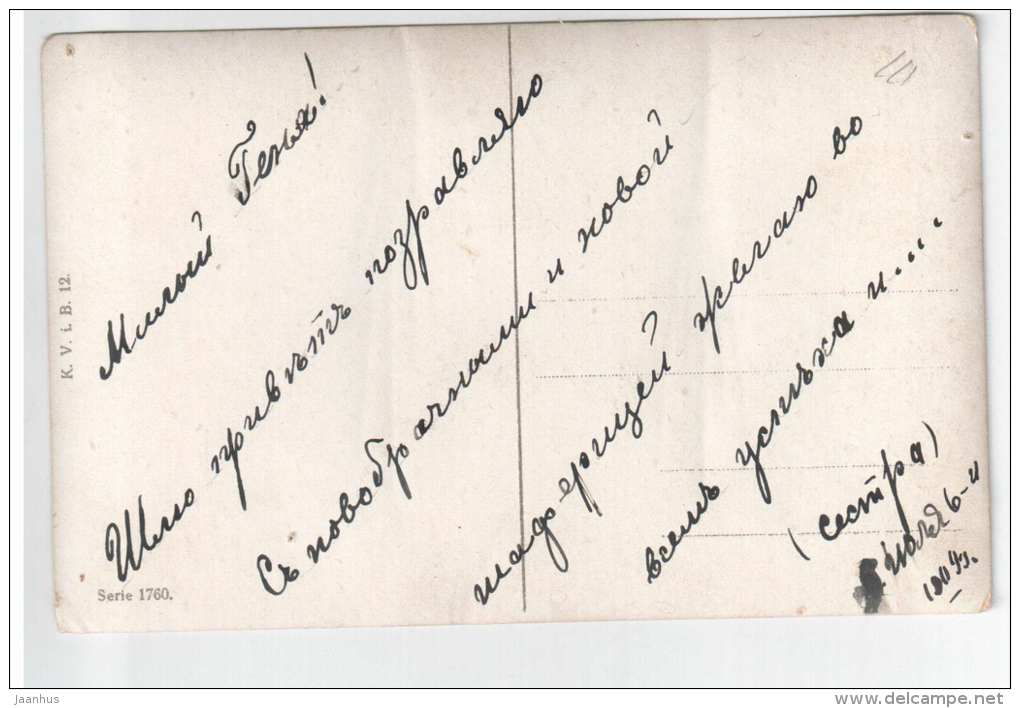 Милый Геня!
Шлю привѣтъ поздравляю
Съ новобрачными и новой
шаферицей желаю во
всемъ успѣха и....
(сестра)
Июля 6-и
K. V. i. B. 12.
Serie 1760.
Jaanhus
www.delcampe.net